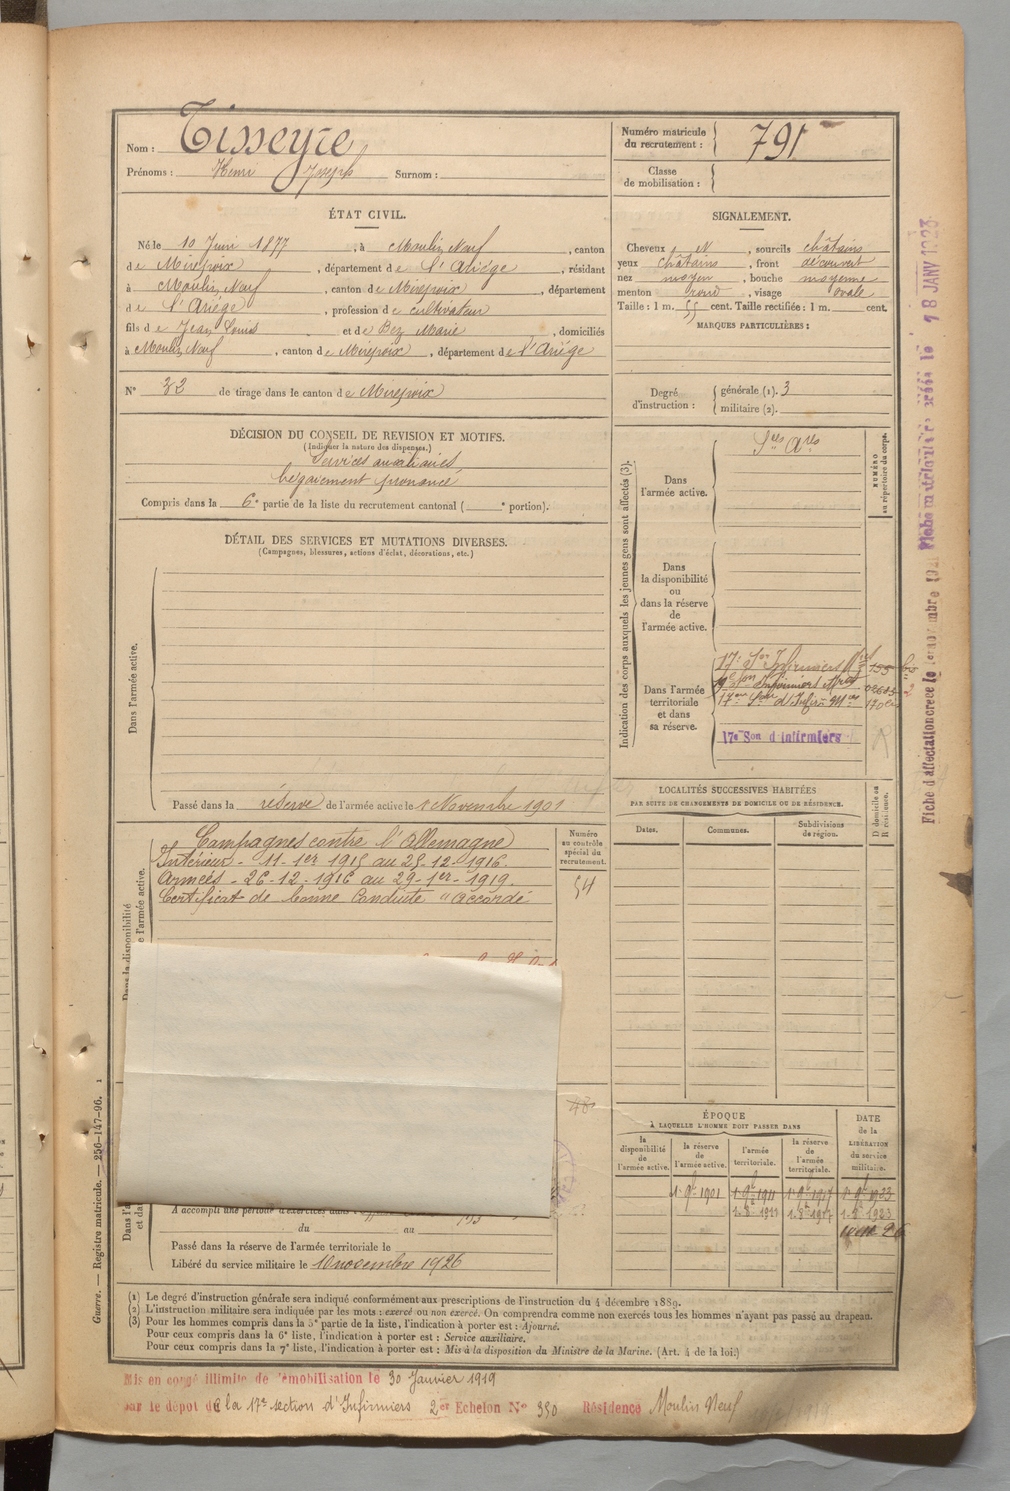 Nom : Tisseyre
Prénoms : Henri Joseph Surnom :
Numéro matricule
du recrutement : 791
Classe
de mobilisation :
ÉTAT CIVIL.
Né le 10 Juin 1877, à Moulin Neuf, canton
de Mirepoix, département de l'Ariège, résidant
à Moulin Neuf, canton de Mirepoix, département
de l'Ariège, profession de cultivateur
fils de Jean Louis et de Bez Marie, domiciliés
à Moulin Neuf, canton de Mirepoix, département de l'Ariège
N° 32 de tirage dans le canton de Mirepoix
SIGNALEMENT.
Cheveux N, sourcils châtains
yeux châtains, front découvert
nez moyen, bouche moyenne
menton rond, visage ovale
Taille : 1 m. 55 cent. Taille rectifiée : 1 m. cent.
MARQUES PARTICULIÈRES :
Degré
d'instruction :
générale (1). 3
militaire (2).
DÉCISION DU CONSEIL DE REVISION ET MOTIFS.
(Indiquer la nature des dispenses.)
Services auxiliaires,
bégaiement prononcé
Compris dans la 6e partie de la liste du recrutement cantonal ( e portion).
DÉTAIL DES SERVICES ET MUTATIONS DIVERSES.
(Campagnes, blessures, actions d'éclat, décorations, etc.)
Dans l'armée active.
Passé dans la réserve de l'armée active le 1 Novembre 1901
Campagnes contre l'Allemagne
Intérieur - 11-1er 1915 au 25-12-1916.
Armées - 26-12-1916 au 29-1er-1919.
Certificat de bonne Conduite "Accordé
Numéro
au contrôle
spécial du
recrutement.
54
Dans la disponibilité
A accompli une période d'exercices dans
du au
Passé dans la réserve de l'armée territoriale le
Libéré du service militaire le 10 novembre 1926
Indication des corps auxquels les jeunes gens sont affectés (3).
Dans
l'armée active.
Sces Ares
Dans
la disponibilité
ou
dans la réserve
de
l'armée active.
Dans l'armée
territoriale
et dans
sa réserve.
17e Son Infirmiers
17e Son d'Infirmiers
NUMÉRO
au répertoire du corps.
LOCALITÉS SUCCESSIVES HABITÉES
PAR SUITE DE CHANGEMENTS DE DOMICILE OU DE RÉSIDENCE.
Dates. Communes. Subdivisions
de région.
D. domicile ou
R. résidence.
ÉPOQUE
À LAQUELLE L'HOMME DOIT PASSER DANS
la
disponibilité
de
l'armée active.
la réserve
de
l'armée active.
l'armée
territoriale.
la réserve
de
l'armée
territoriale.
DATE
de la
LIBÉRATION
du service
militaire.
1. 9bre 1901 1. 9bre 1911 1. 9bre 1917 1. 9bre 1923
(1) Le degré d'instruction générale sera indiqué conformément aux prescriptions de l'instruction du 4 décembre 1889.
(2) L'instruction militaire sera indiquée par les mots : exercé ou non exercé. On comprendra comme non exercés tous les hommes n'ayant pas passé au drapeau.
(3) Pour les hommes compris dans la 5e partie de la liste, l'indication à porter est : Ajourné.
Pour ceux compris dans la 6e liste, l'indication à porter est : Service auxiliaire.
Pour ceux compris dans la 7e liste, l'indication à porter est : Mis à la disposition du Ministre de la Marine. (Art. 4 de la loi.)
Guerre. — Registre matricule. — 256-147-96. 1
Mis en congé illimité de démobilisation le 30 Janvier 1919
par le dépôt de la 17e section d'Infirmiers 2er Echelon N° 350 Résidence Moulin Neuf